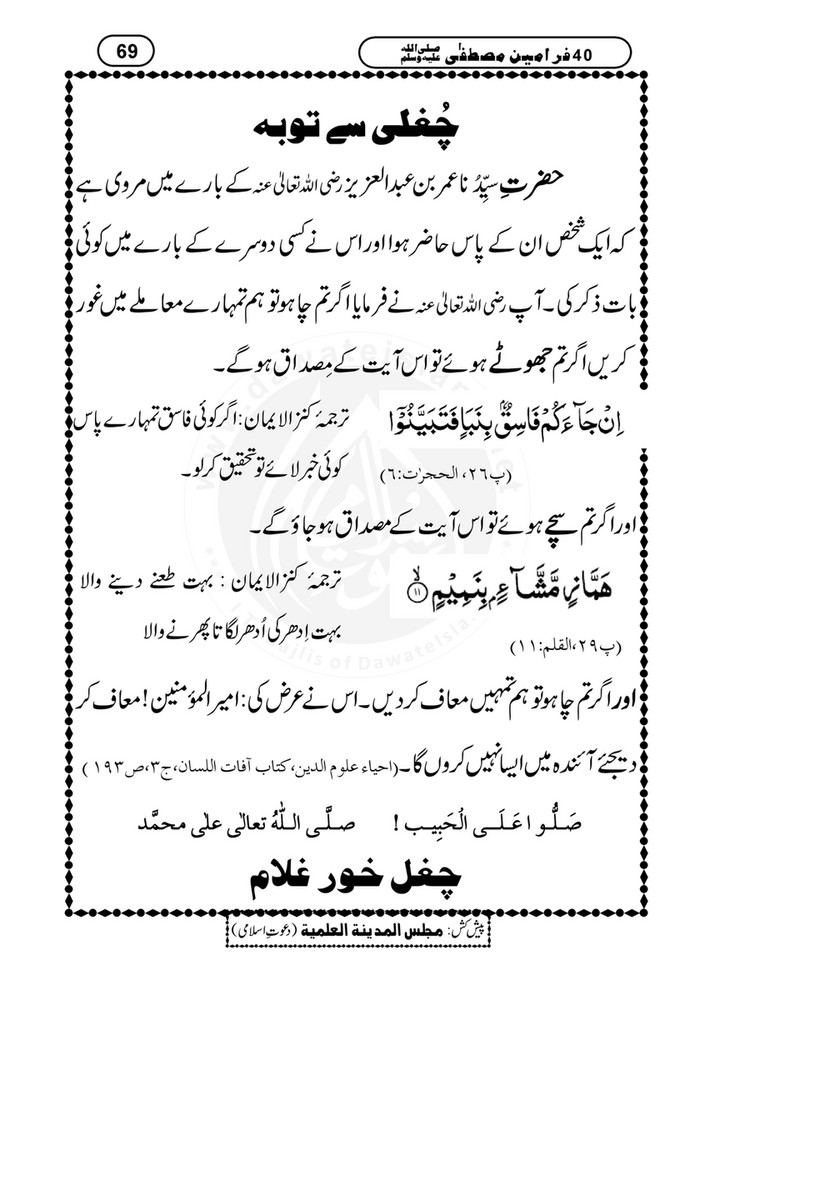 40 فرامین مصطفٰی صلی اللہ علیہ وسلم
69
چُغلی سے توبہ
حضرتِ سیِّدُنا عمر بن عبدالعزیز رضی اللہ تعالیٰ عنہ کے بارے میں مروی ہے
کہ ایک شخص ان کے پاس حاضر ہوا اور اس نے کسی دوسرے کے بارے میں کوئی
بات ذکر کی۔ آپ رضی اللہ تعالیٰ عنہ نے فرمایا اگر تم چاہو تو ہم تمہارے معاملے میں غور
کریں اگر تم جھوٹے ہوئے تو اس آیت کے مِصداق ہو گے۔
اِنْ جَآءَكُمْ فَاسِقٌۢ بِنَبَاٍ فَتَبَیَّنُوْۤا
(پ۲۶، الحجرٰت:۶)
ترجمۂ کنز الایمان: اگر کوئی فاسق تمہارے پاس
کوئی خبر لائے تو تحقیق کر لو۔
اور اگر تم سچے ہوئے تو اس آیت کے مصداق ہو جاؤ گے۔
هَمَّازٍ مَّشَّآءٍۭ بِنَمِیْمٍۙ۝۱۱
(پ۲۹، القلم:۱۱)
ترجمۂ کنز الایمان : بہت طعنے دینے والا
بہت اِدھر کی اُدھر لگاتا پھرنے والا
اور اگر تم چاہو تو ہم تمہیں معاف کر دیں۔ اس نے عرض کی: امیر المؤمنین! معاف کر
دیجئے آئندہ میں ایسا نہیں کروں گا۔ (احیاء علوم الدین، کتاب آفات اللسان، ج۳، ص۱۹۳)
صَلُّوا عَلَی الْحَبِیب! صلَّی اللّٰهُ تعالٰی علٰی محمَّد
چغل خور غلام
پیش کش: مجلس المدینة العلمیة (دعوتِ اسلامی)